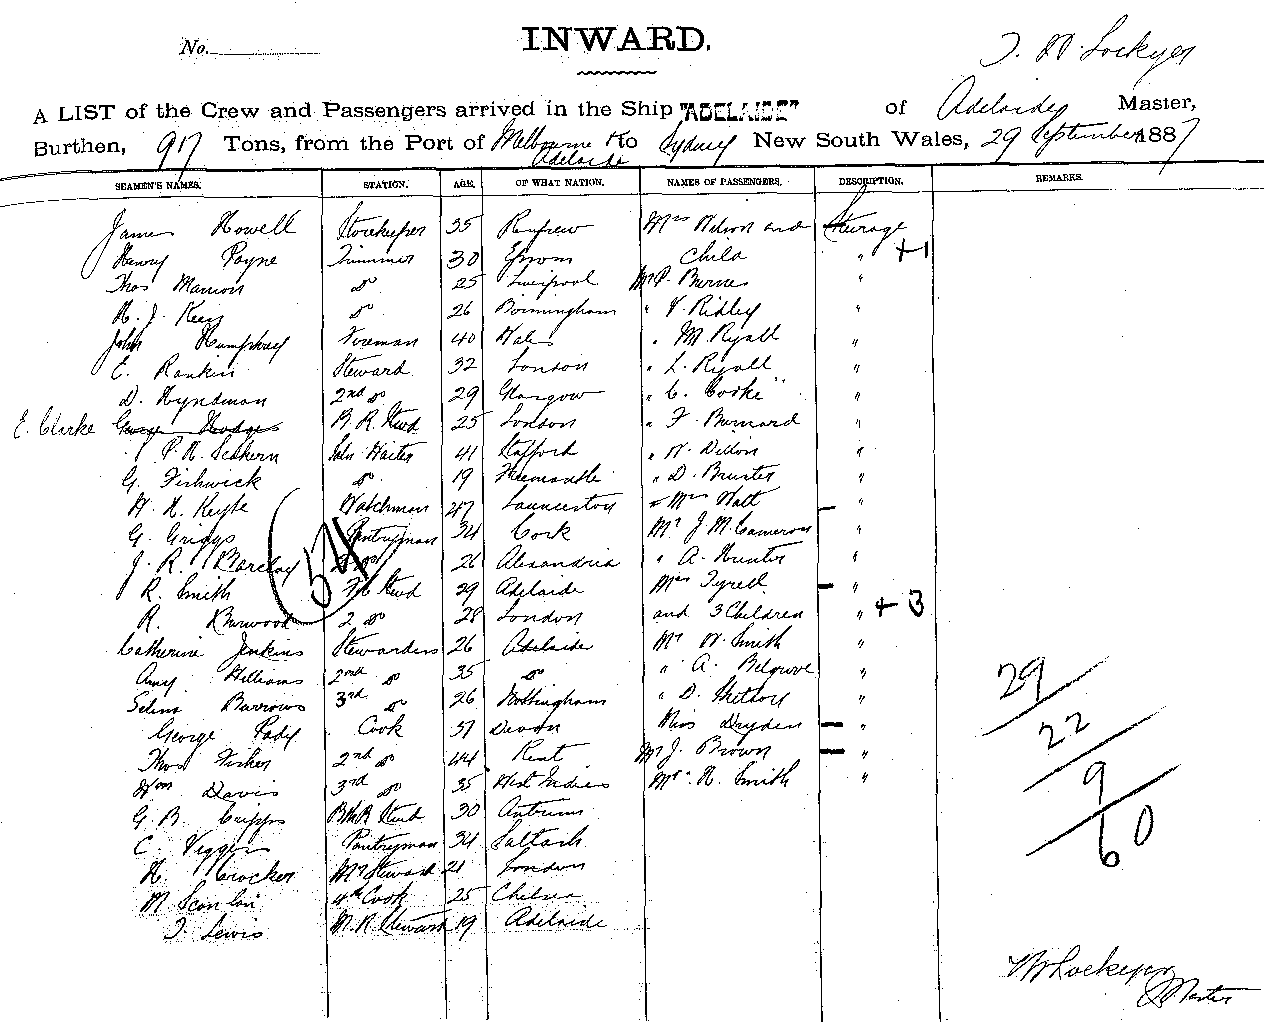 No.
INWARD.
A LIST of the Crew and Passengers arrived in the Ship "ADELAIDE" of Adelaide Master,
Burthen, 917 Tons, from the Port of Melbourne to Sydney New South Wales, 29 September 1887
Adelaide
SEAMEN'S NAMES. STATION. AGE. OF WHAT NATION. NAMES OF PASSENGERS. DESCRIPTION. REMARKS.
James Howell Storekeeper 35 Renfrew Mrs Wilson and Steerage
Henry Payne Trimmer 30 Epsom Child " +1
Thos Marrion do 25 Liverpool Mr P. Burnes "
H. J. Keen do 26 Birmingham " V. Ridley "
John Humphrey Foreman 40 Wales " M Ryall "
E. Rankin Steward 32 London " L. Ryall "
D. Hyndman 2nd do 29 Glasgow " C. Cooke "
E. Clarke George Hodges B. R. Stwd 25 London " F. Burnard "
P. H. Seckern Saln Waiter 41 Stafford " W. Dillon "
G. Fishwick do 19 Fremantle " D. Brunter "
W. H. Keyte Watchman 47 Launceston " Mrs Watt "
G. Griggs Pantryman 34 Cork Mr J. M. Cameron "
J. R. Barclay 2 do 26 Alexandria " A. Hunter "
R. Smith F.C. Stwd 29 Adelaide Mrs Tyrell "
R. Burwood 2 do 28 London and 3 Children " + 3
Catherine Jenkins Stewardess 26 Adelaide Mr W. Smith "
Amy Williams 2nd do 35 do " A. Belgrove "
Selina Burrows 3rd do 26 Nottingham " D.
George Pady Cook 51 Devon Miss Dryden "
Thos Fisher 2nd do 44 Kent Mr J. Brown "
Wm Davis 3rd do 35 West Indies Mr H. Smith "
G. B. Cripps 30 Antrim
C. Viggers Pantryman 34 Saltash
H. Crocker Steward 21 London
M Scanlan 4th Cook 25 Chelsea
T. Lewis M. R. Steward 19 Adelaide
54
29
22
9
60
W Lockyer
Master